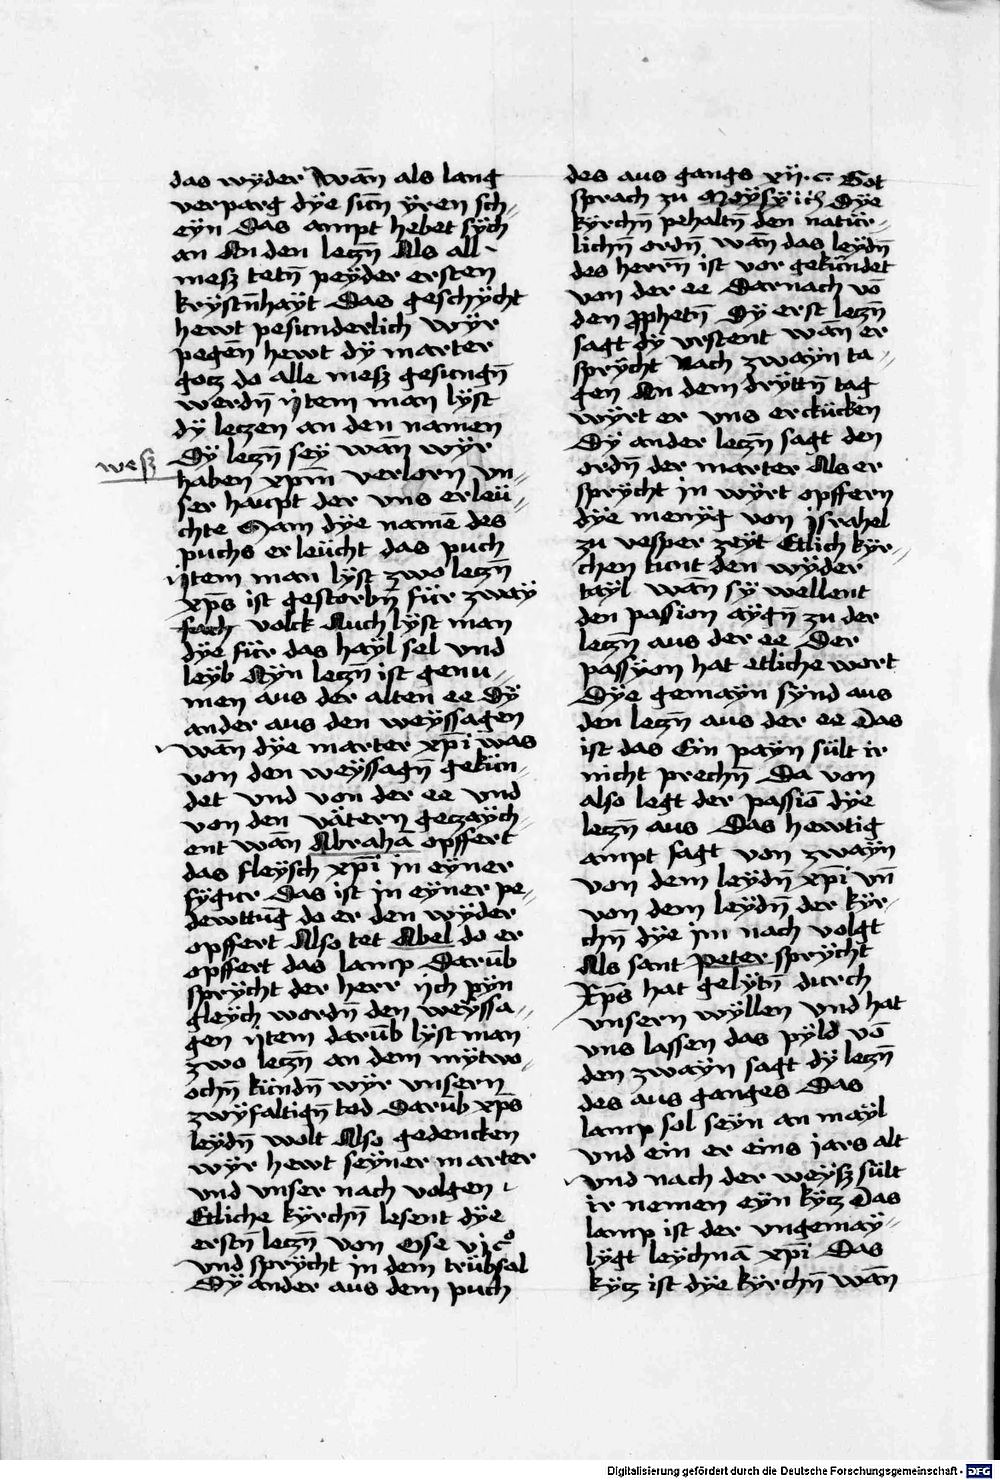 das wyder wān als lang
verparg dÿe sūn ÿren sch-
eÿn Das ampt hebet sÿch
an An den leczn̄ Als all
mesz tetn̄ peÿder ersten
krÿstn̄haÿt Das geschÿcht
hewt pesunderlich wÿr
pegen̄ hewt dÿ marter
gotz do alle mesz gesungn̄
werdn̄ Item man lÿst
dÿ leczen an den namen
Dÿ leczn̄ seÿ wān wÿr
wesz
haben xpm̄ verlorn vn-
ser haupt der vns erleü-
chte Sam dÿe namē des
puchs erleücht das puch
Item man lÿst zwo leczn̄
xp̄s ist gestorbn̄ für zwaÿ
fach volck Auch lÿst man
dÿe für das haÿl sel vnd
leÿb Aÿn leczn̄ ist genu-
men aus der alten ee Dÿ
ander aus den weÿssagen
wān dÿe marter xp̄i was
von den weÿssagn̄ gekün-
det vnd von der ee vnd
von den vätern geczaÿch-
ent wān Abrahā opffert
das fleÿsch xp̄i in eÿner
fÿgur Das ist in eÿner pe-
dewttūg do er den wÿder
opffert Also tet Abel do er
opffert das lamp Darūb
sprÿcht der herr Ich pÿn
gleÿch wordn̄ den weÿssa-
gen Item darūb lÿst man
zwo leczn̄ an dem mÿtwo-
ochn̄ kündn̄ wÿr vnsern
zwÿfaltign̄ tod Darūb xp̄s
leÿdn̄ wolt Also gedencken
wÿr hewt seÿner marter
vnd vnser nach volgen
Etliche kÿrchn̄ lesent dÿe
erstn̄ leczn̄ von Ose vi c°
vnd sprÿcht in dem trübsal
Dÿ ander aus dem puch
des aus gangs xii c Got
sprach zu Moÿsÿ ich Dÿe
kÿrchn̄ pehaltn̄ den natür-
lichn̄ ordn̄ wān das leÿdn̄
des herrn̄ ist vor gekündet
von der ee Darnach vō
den pphetn̄ Dÿ erst leczn̄
sagt dÿ vrstent wān er
sprÿcht Nach zwaÿn ta-
gen An dem drÿttn̄ tag
wÿrt er vns erckücken
Dÿ ander leczn̄ sagt den
ordn̄ der marter Als er
sprÿcht in wÿrt opffern
dÿe menÿg von Israhel
zu vesper zeÿt Etlich kÿr-
chen tunt den wÿder
taÿl wān sÿ wellent
den passion aÿgn̄ zu der
leczn̄ aus der ee Der
passÿon hat etliche wort
Dÿe gemaÿn sÿnd aus
den leczn̄ aus der ee Das
ist das Ein paÿn sült ir
nicht prechn̄ Da von
also legt der passiō dÿe
leczn̄ aus Das hewtig
ampt sagt von zwaÿn
von dem leÿdn̄ xp̄i vn̄
von dem leÿdn̄ der kÿr-
chn̄ dÿe im nach volgt
Als sant Peter sprÿcht
Xp̄s hat gelÿtn̄ durch
vnsern wÿllen vnd hat
vns lassen das pÿld vō
den zwaÿn sagt dÿ leczn̄
des aus ganges Das
lamp sol seÿn an maÿl
vnd ein er eins jars alt
vnd nach der weÿsz sült
ir nemen eÿn kÿcz Das
lamp ist der vngemaÿ-
lÿgt leÿchnā xp̄i Das
kÿcz ist dÿe kÿrchn̄ wān
Digitalisierung gefördert durch die Deutsche Forschungsgemeinschaft - DFG